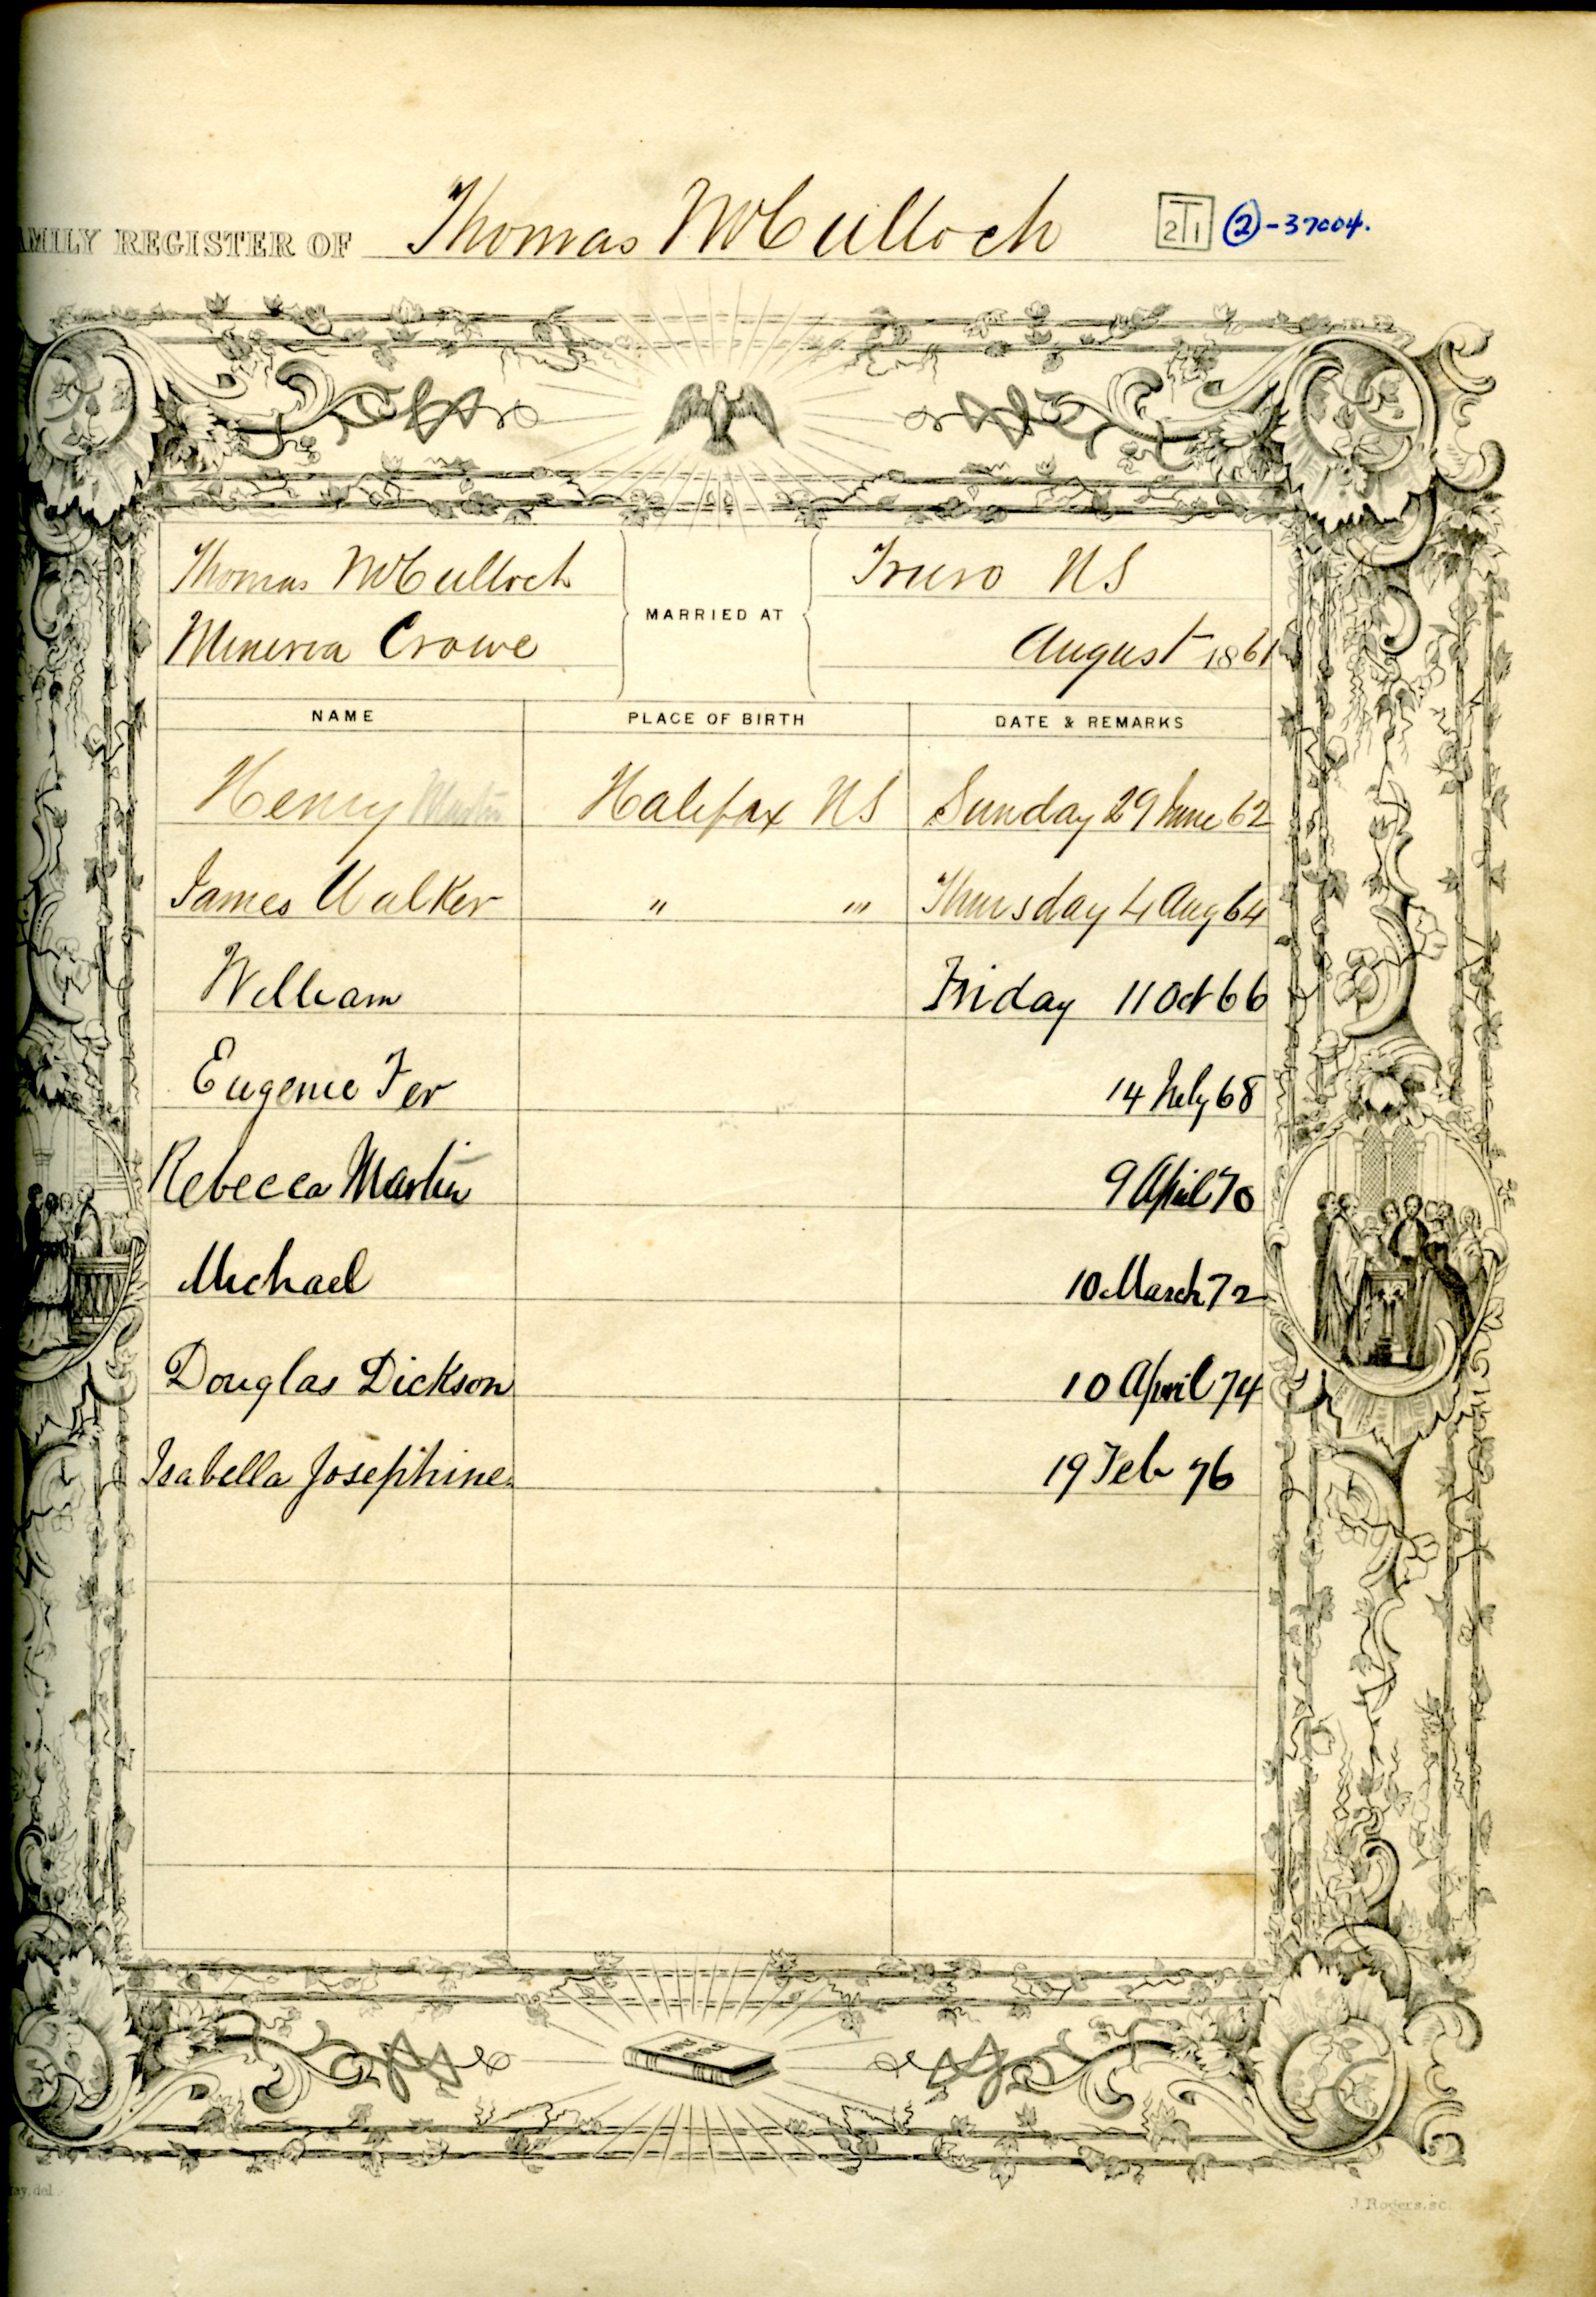 AMILY REGISTER OF Thomas McCulloch 2T1 2-37004.
Thomas McCulloch
Minerva Crowe
MARRIED AT
Truro NS
August 1861
NAME PLACE OF BIRTH DATE & REMARKS
Henry Martin Halifax NS Sunday 29 June 62
James Walker " " Thursday 4 Aug 64
William Friday 11 Oct 66
Eugenie 14 July 68
Rebecca Martin 9 April 70
Michael 10 March 72
Douglas Dickson 10 April 74
Isabella Josephine. 19 Feb 76
HOLY
BIBLE
ay, del. J. Rogers, sc.